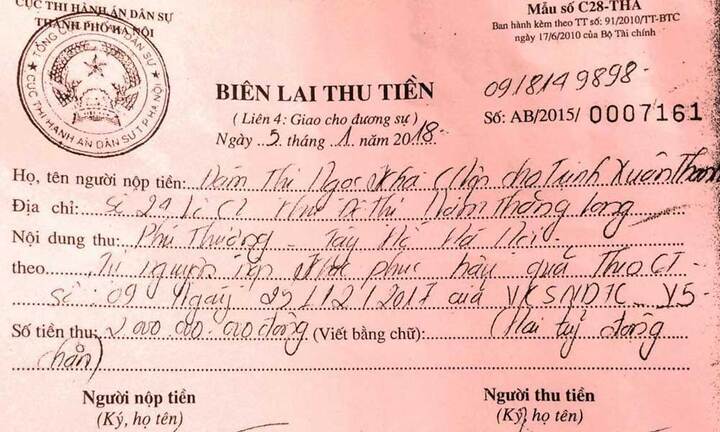 CỤC THI HÀNH ÁN DÂN SỰ
THÀNH PHỐ HÀ NỘI
TỔNG CỤC THI HÀNH ÁN DÂN SỰ
CỤC THI HÀNH ÁN DÂN SỰ T.P HÀ NỘI
Mẫu số C28-THA
Ban hành kèm theo TT số: 91/2010/TT-BTC
ngày 17/6/2010 của Bộ Tài chính
BIÊN LAI THU TIỀN
0918149898
(Liên 4: Giao cho đương sự)
Số: AB/2015/ 0007161
Ngày 5 tháng 1 năm 2018
Họ, tên người nộp tiền: Đàm Thị Ngọc Kha (Nộp cho Trịnh Xuân Thanh
Địa chỉ: Số 24 Lô C1 Khu Đô Thị Nam Thăng Long
Nội dung thu: Phú Thượng - Tây Hồ Hà Nội
theo Tự nguyện nộp khắc phục hậu quả Theo CT
số 09 Ngày 29/12/2017 của VKSNDTC V5
Số tiền thu: 2000.000.000 đồng (Viết bằng chữ): (Hai tỷ đồng
chẵn)
Người nộp tiền Người thu tiền
(Ký, họ tên) (Ký, họ tên)